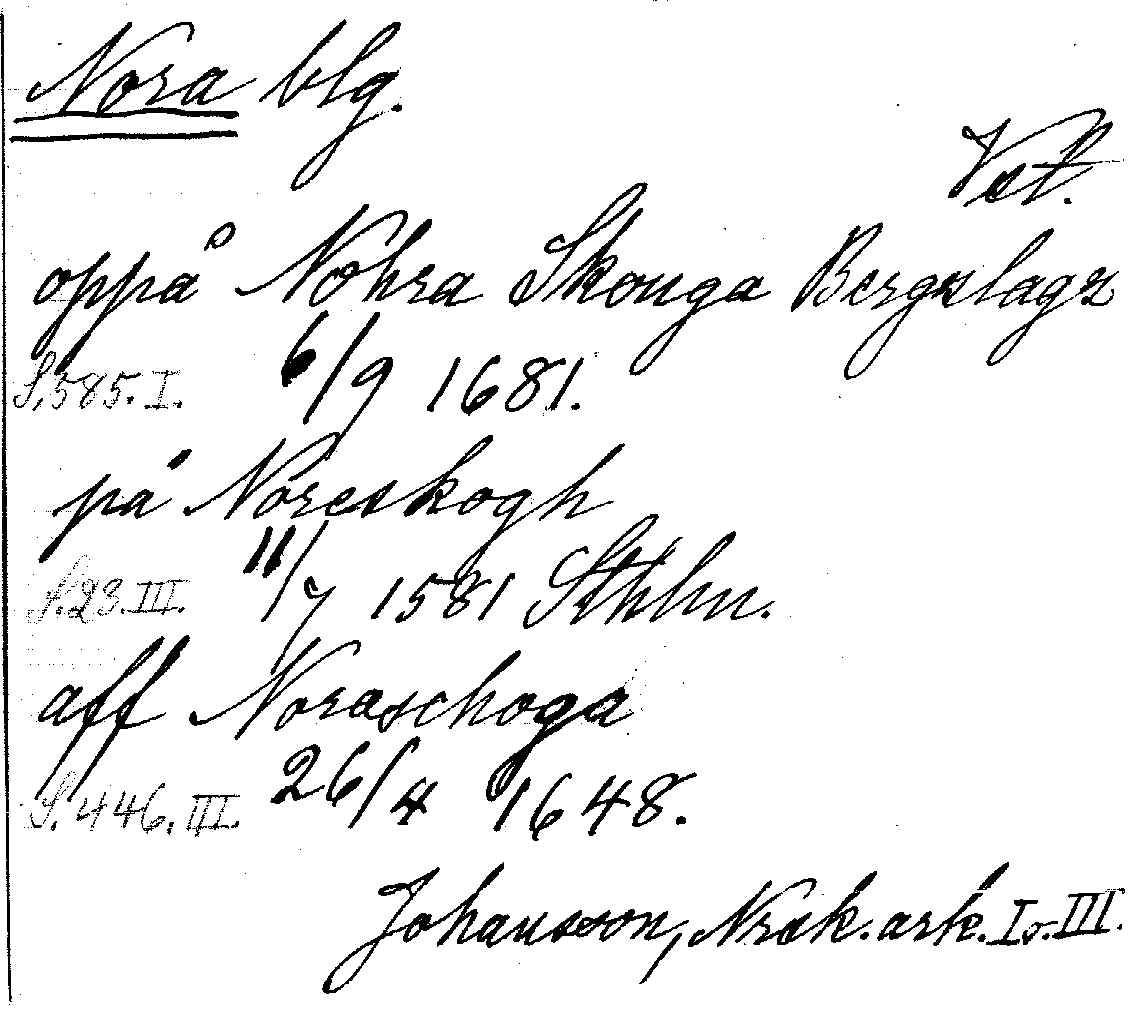 Nora blg.
Vst.
oppå Nohra Skouga Bergzlagz
S. 585. I. 6/9 1681.
på Noreskogh
S. 23. III. 11/7 1581 Sthlm.
aff Noraschoga
S. 446. III. 26/4 1648.
Johansson, Norask. ark. I o. III.